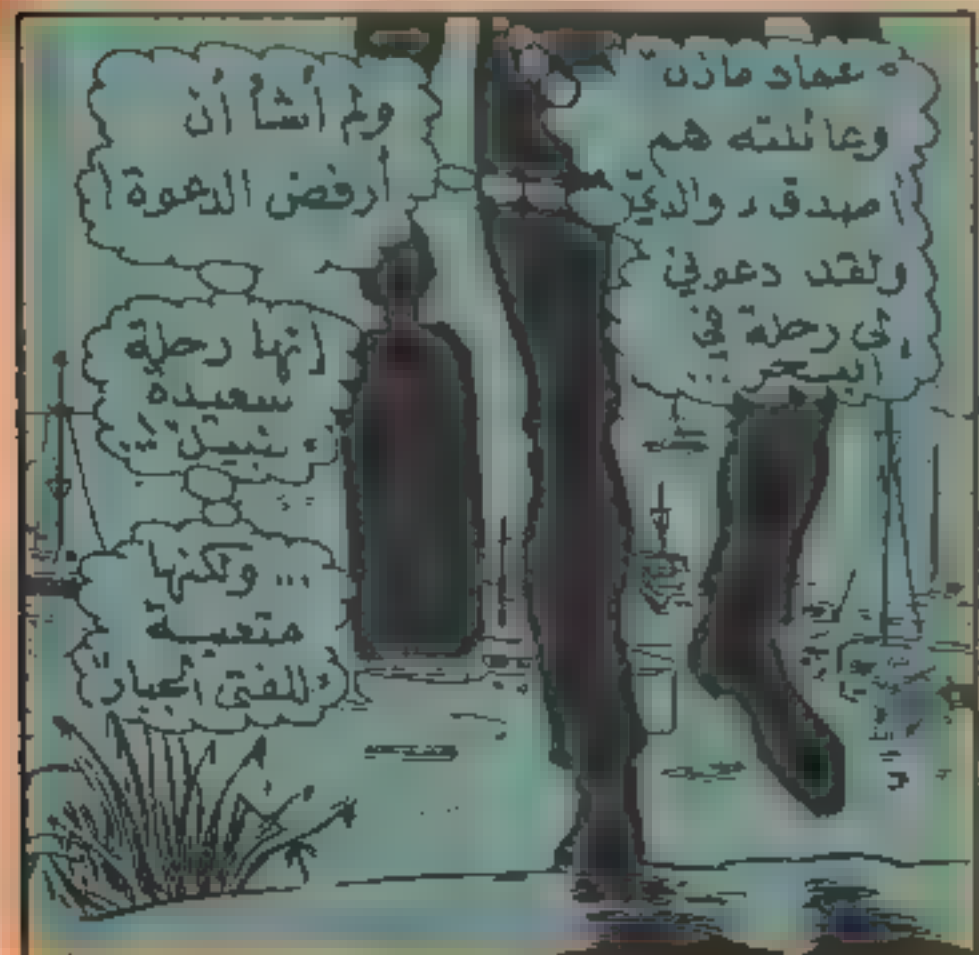 " عماد مازن "
وعائلته هم
اصدقاء والديّ
ولقد دعوني
الى رحلة في
البحر ...
ولم أشأ أن
أرفض الدعوة !
إنها رحلة
سعيده
" لنبيل " ..
... ولكنها
متعبة
" للفتى الجبار "